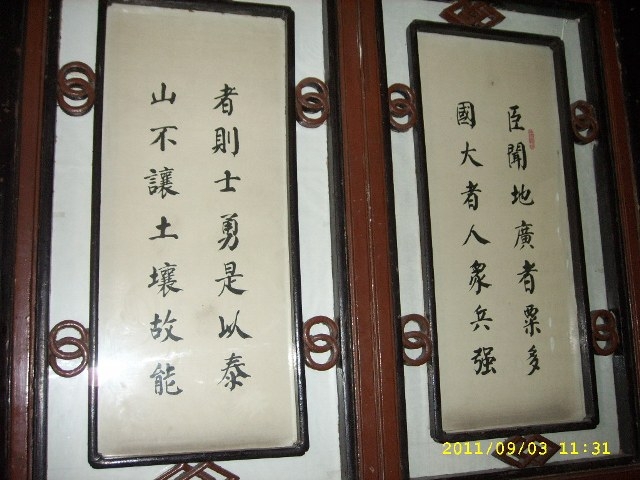 臣聞地廣者粟多
國大者人眾兵强
者則士勇是以泰
山不讓土壤故能
2011/09/03 11:31